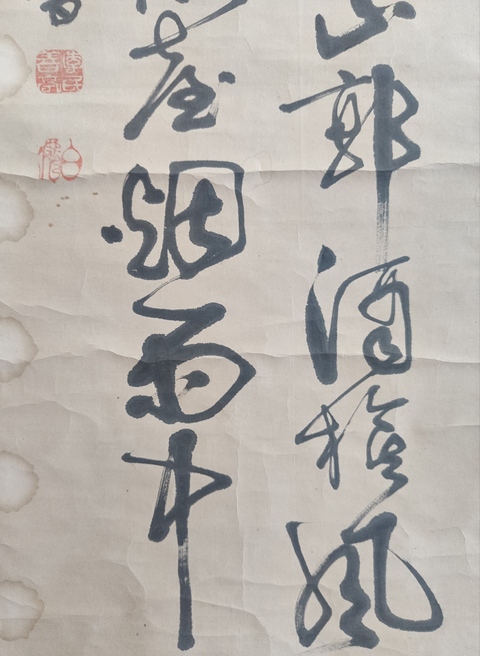 山郭酒旗風
臺烟雨中